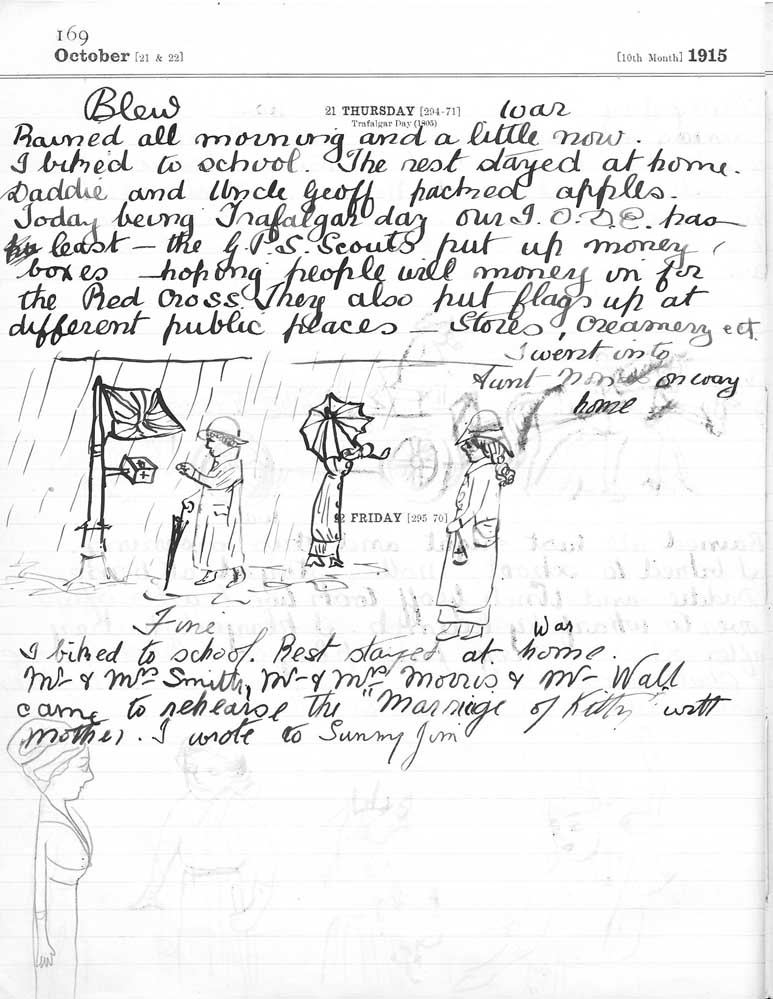 169
October [21 & 22] [10th Month] 1915
Blew 21 THURSDAY [294-71] war
Trafalgar Day (1805)
Rained all morning and a little now.
I biked to school. The rest stayed at home.
Daddie and Uncle Geoff packed apples.
Today being Trafalgar day our I.O.D.E. has
least — the G.P.S. Scouts put up money
boxes — hoping people will money in for
the Red Cross. They also put flags up at
different public places — Stores, Creamery ect.
I went into
Aunt on way
home
22 FRIDAY [295-70]
Fine War
I biked to school. Rest stayed at home.
Mr & Mrs Smith, Mr & Mrs Morris & Mr Wall
came to rehearse the "Marriage of Kitty" with
Mother. I wrote to Sunny Jim